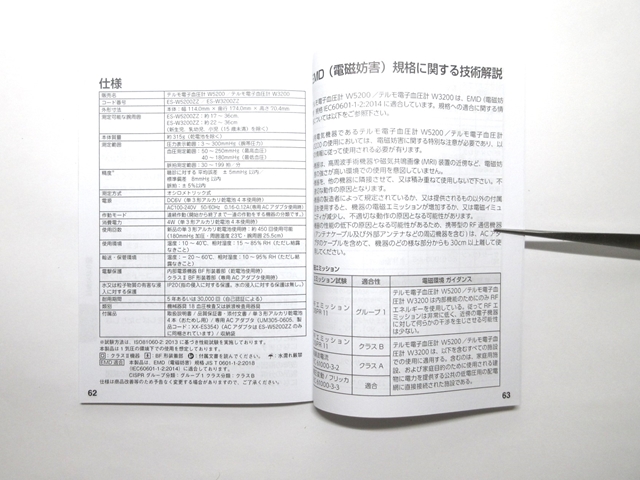 仕様
販売名 テルモ電子血圧計 W5200 テルモ電子血圧計 W3200
コード番号 ES-W5200ZZ ES-W3200ZZ
外形寸法 本体:幅 114.0mm × 奥行 174.0mm × 高さ 70.4mm
測定可能な腕周 ES-W5200ZZ:約17〜36cm、
ES-W3200ZZ:約22〜36cm
(新生児、乳幼児、小児(15歳未満)を除く)
本体質量 約315g(乾電池を除く)
測定範囲 圧力表示範囲:3〜300mmHg(腕帯圧力)
血圧測定範囲:50〜250mmHg(最高血圧)
40〜180mmHg(最低血圧)
脈拍測定範囲:30〜199 拍/分
精度
血圧:8mmHg 以内
脈拍:±5%以内
測定方式 オシロメトリック式
電源 DC6V(単3形アルカリ乾電池4本使用時)
AC100-240V 50-60Hz 0.16-0.12A(専用ACアダプタ使用時)
作動モード 連続作動(開始から終了まで一連の作動をする機器の分類です。)
消費電力 4W(単3形アルカリ乾電池4本使用時)
使用回数 新品の単3形アルカリ乾電池使用時:約450回使用可能
(180mmHg 加圧・周囲温度 23℃・腕周 25.5cm)
使用環境 温度:10〜40℃、相対湿度:15〜85%RH(ただし結露なきこと)
輸送・保管環境 温度:−20〜60℃、相対湿度:10〜95%RH(ただし結露なきこと)
電撃保護 内部電源機器 BF形装着部(乾電池使用時)
クラスⅡ機器 BF形装着部(専用ACアダプタ使用時)
水または粒子物質の有害な浸入に対する保護 IP20
耐用期間 5年あるいは30,000回(自己認証による)
類別 機械器具 18 血圧検査又は脈波検査用器具
付属品 取扱説明書/品質保証書/添付文書/単3形アルカリ乾電池
4本(お試し用)/専用ACアダプタ
コード:XX-ES354)(ACアダプタは ES-W5200ZZ のみ
に同梱されています)/収納袋
※試験方法は、ISO81060-2:2013 に基づき性能試験を実施しております。
本製品は1気圧の環境下での使用を想定しております。
クラスⅡ機器 BF形装着部 付属文書を読んでください。 水濡れ厳禁
EMD適合 本製品は、EMD(電磁妨害)規格 JIS T 0601-1-2:2018
(IEC60601-1-2:2014)に適合しています。
CISPR グループ分類:グループ1 クラス分類:クラスB
仕様は商品改善等のため予告なく変更する場合がありますので、ご了承ください。
62
EMD(電磁妨害)規格に関する技術解説
テルモ電子血圧計 W5200/テルモ電子血圧計 W3200は、EMD(電磁妨
規格 IEC60601-1-2:2014 に適合しています。規格への適合に関する情
ついては以下をご参照下さい。
電気機器であるテルモ電子血圧計 W5200/テルモ電子血圧計
3200の使用においては、電磁妨害に関する特別な注意が必要であり、以
に従って使用される必要が有ります。
機器は、高周波手術機器や磁気共鳴画像(MRI)装置の近傍など、電磁妨
強さが高い環境での使用を意図していません。
他の機器に隣接させて、又は積み重ねて使用しないで下さい。不
な動作の原因となります。
機器の製造者によって規定されているか、又は提供されるもの以外の付属
を使用すると、機器の電磁エミッションが増加するか、又は電磁イミュ
ティが減少し、不適切な動作の原因となる可能性があります。
の性能の低下の原因となる可能性があるため、携帯型の RF 通信機器
アンテナケーブル及び外部アンテナなどの周辺機器を含む)は、ACアダ
のケーブルを含めて、機器のどの様な部分からも 30cm 以上離して使
してください。
エミッション
エミッション試験 適合性 電磁環境 ガイダンス
エミッション
11 グループ 1 テルモ電子血圧計 W5200/テルモ電子血
圧計 W3200 は内部機能のためにのみ RF
エネルギーを使用している。従って RF エ
ミッションは非常に低く、近傍の電子機器
に対して何らかの干渉を生じさせる可能性
は少ない。
エミッション
11 クラス B テルモ電子血圧計 W5200/テルモ電子血
圧計 W3200 は、以下を含むすべての施設
での使用に適する。含むのは、家庭用施
設、および家庭目的のために使用される建
物に電力を提供する公共の低電圧用の配電
網に直接接続された施設である。
61000-3-2 クラス A
電圧変動/フリッカ
61000-3-3 適合
63